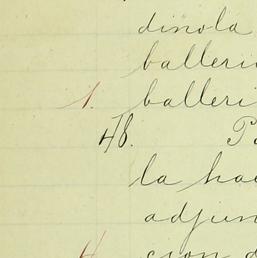 dinola
balleri
1. balleri
48. Pa
la hac
adjun
4 cion d